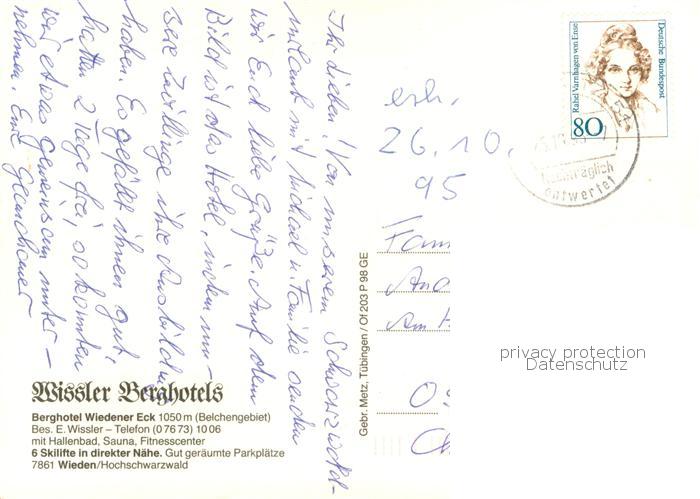 Ihr Lieben! Von unserem Schwarzwald-
urlaub mit Michael u. Familie senden
wir Euch liebe Grüße. Auf dem
Bild ist das Hotel, indem un-
sere Zwillinge ihre Ausbildung
haben. Es gefällt ihnen gut.
hatten 2 Tage frei, so konnten
wir etwas gemeinsam unter-
nehmen. Eure
Wissler Berghotels
Berghotel Wiedener Eck 1050 m (Belchengebiet)
Bes. E. Wissler – Telefon (0 76 73) 10 06
mit Hallenbad, Sauna, Fitnesscenter
6 Skilifte in direkter Nähe. Gut geräumte Parkplätze
7861 Wieden/Hochschwarzwald
Gebr. Metz, Tübingen / Of 203 P 98 GE
erh.
26. 10.
95
Fam
Am
Deutsche Bundespost
Rahel Varnhagen von Ense
80
Nachträglich
entwertet
privacy protection
Datenschutz